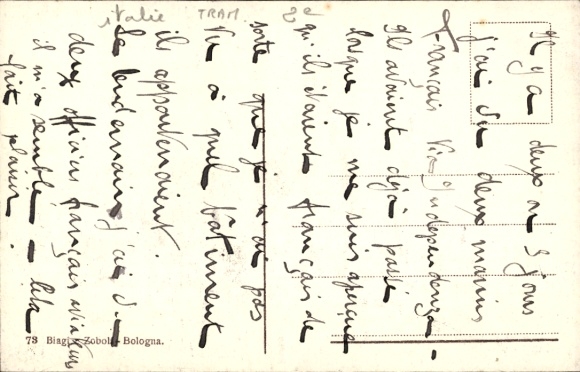 italie TRAM. 2e
Il y a deux ou 3 jours
j'ai vu deux marins
français Via Independenza -
Ils avaient déjà passé
lorsque je me suis aperçue
qu'ils étaient français de
sorte que je n'ai pas
vu à quel bâtiment
il appartenaient.
Le lendemain j'ai vu
deux officiers français aviateurs
il m'a semblé - cela
fait plaisir.
73 Biagi e Zoboli - Bologna.